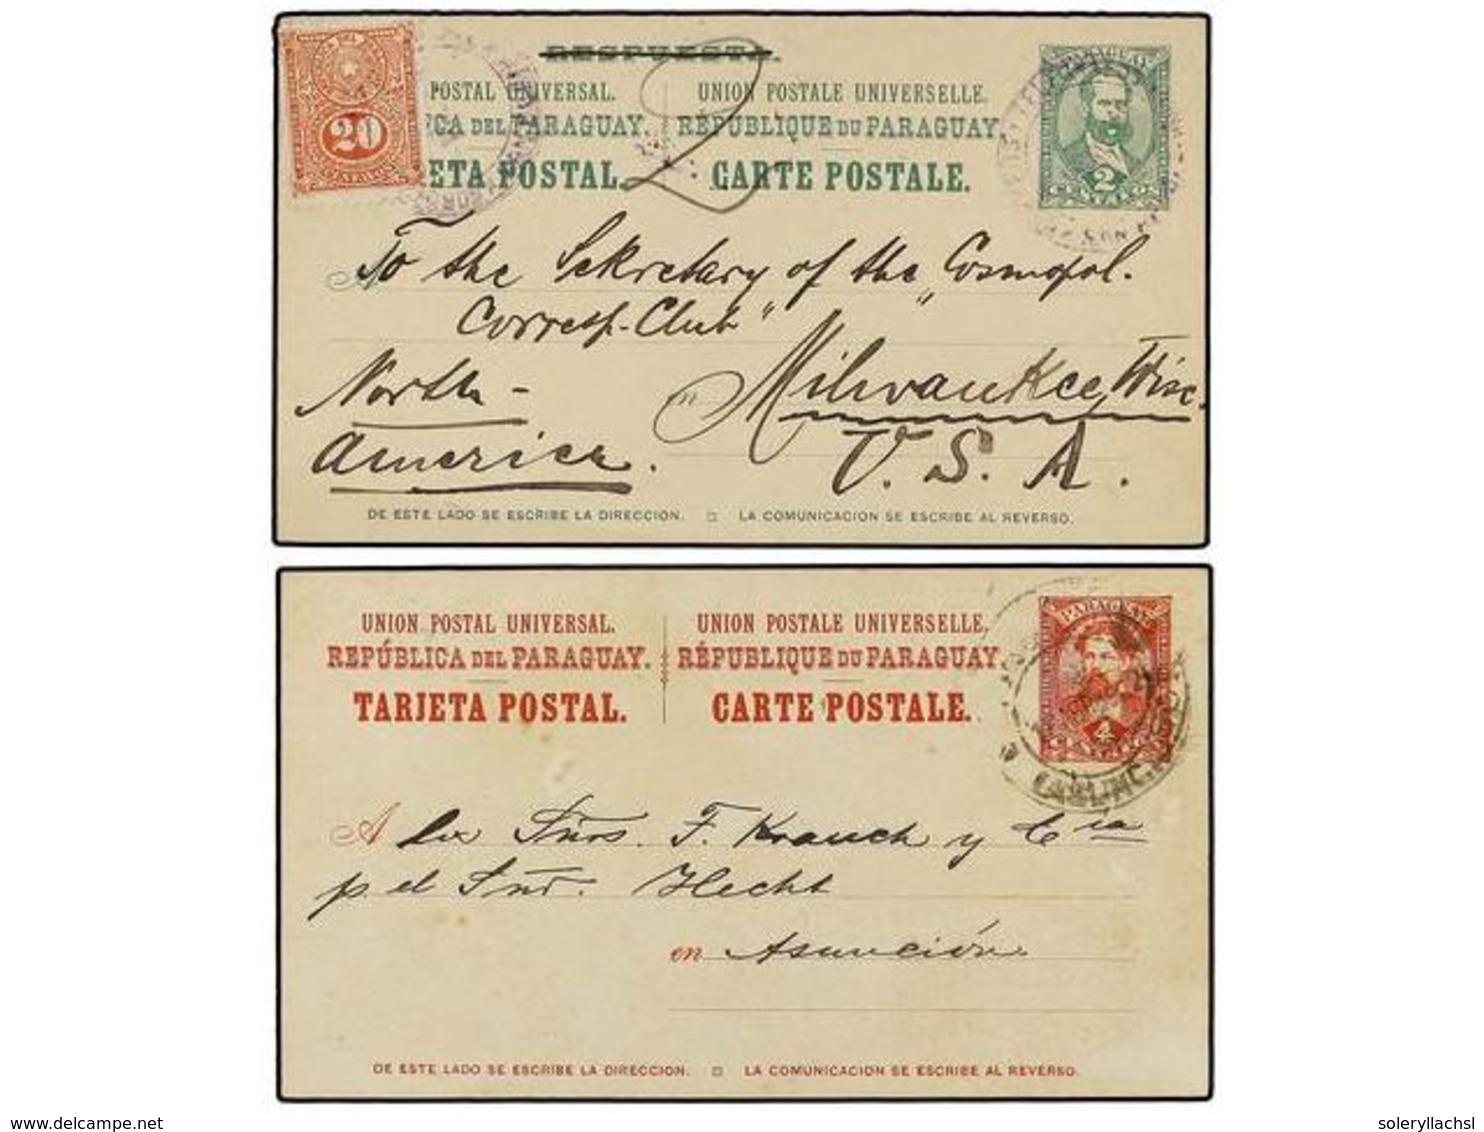 RESPUESTA.
20
CENTAVOS
POSTAL UNIVERSAL.
UNION POSTALE UNIVERSELLE.
CA DEL PARAGUAY.
RÉPUBLIQUE DU PARAGUAY.
ETA POSTAL.
CARTE POSTALE.
2
PARAGUAY
2
CENTAVOS
To the Sekretary of the "Cosmopol.
Corresp.-Club"
North-
en Milwaukee, Wisc.
America.
U. S. A.
DE ESTE LADO SE ESCRIBE LA DIRECCION. □ LA COMUNICACION SE ESCRIBE AL REVERSO.
UNION POSTAL UNIVERSAL.
UNION POSTALE UNIVERSELLE.
REPÚBLICA DEL PARAGUAY.
RÉPUBLIQUE DU PARAGUAY.
TARJETA POSTAL.
CARTE POSTALE.
PARAGUAY
4
CENTAVOS
A los Sñrs. F. Krauch y Cia
p. el Sñr. Hecht
en Asunción
DE ESTE LADO SE ESCRIBE LA DIRECCION. □ LA COMUNICACION SE ESCRIBE AL REVERSO.
delcampe.net
soleryllachsl